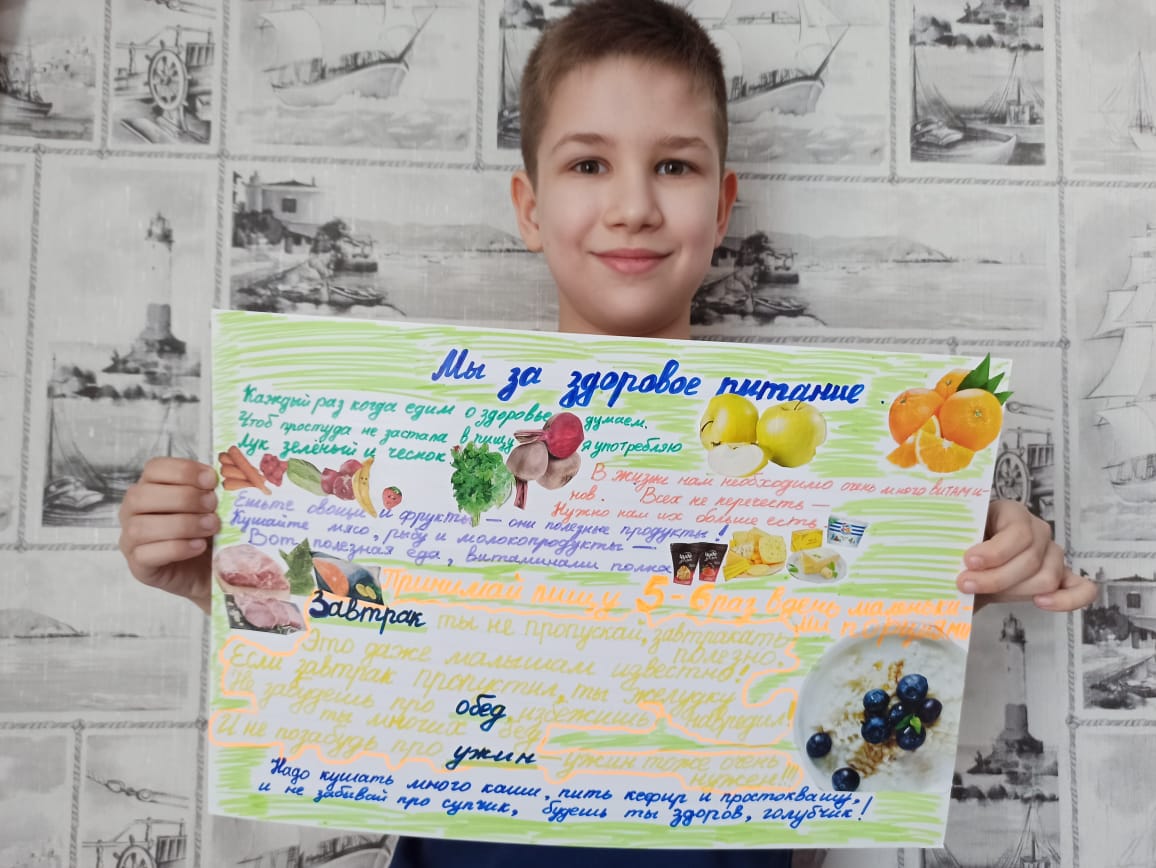 Мы за здоровое питание
Каждый раз когда едим о здоровье думаем.
Чтоб простуда не застала в пищу я употребляю
Лук зелёный и чеснок
В жизни нам необходимо очень много витами-
нов. Всех не перечесть —
Нужно нам их больше есть
Ешьте овощи и фрукты — они полезные продукты!
Кушайте мясо, рыбу и молокопродукты —
Вот полезная еда, витаминами полна
Принимай пищу 5-6 раз в день маленьки-
ми порциями
Завтрак ты не пропускай, завтракать
полезно,
Это даже малышам известно!
Если завтрак пропустил, ты желудку
навредил!
Не забудешь про обед избежишь
ты многих бед
И не позабудь про ужин — ужин тоже очень
нужен!!!
Надо кушать много каши, пить кефир и простоквашу,
и не забывай про супчик, будешь ты здоров, голубчик!